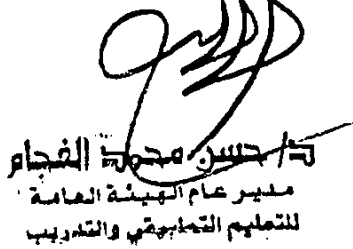 د/ حسن محمود الفجام
مدير عام الهيئة العامة
للتعليم التطبيقي والتدريب